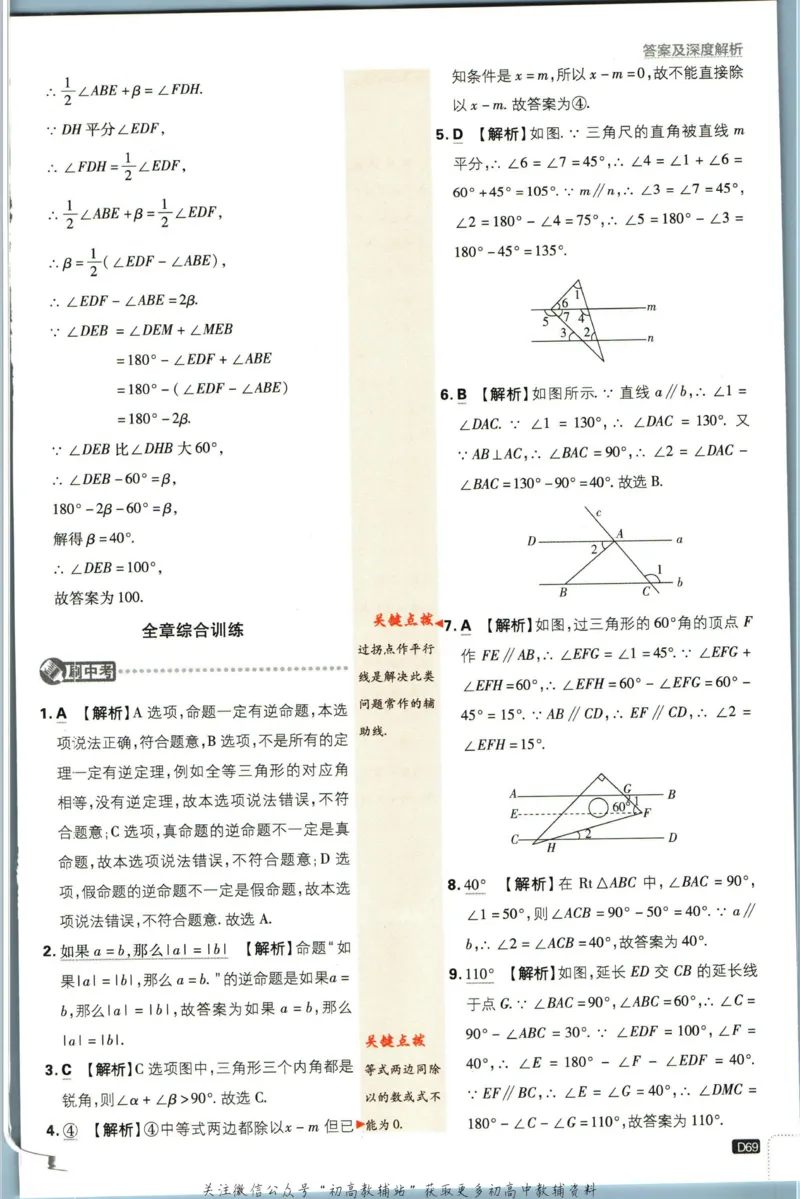 答案及深度解析
∴ 1/2∠ABE+β=∠FDH.
∵ DH平分∠EDF,
∴ ∠FDH=1/2∠EDF,
∴ 1/2∠ABE+β=1/2∠EDF,
∴ β=1/2(∠EDF-∠ABE),
∴ ∠EDF-∠ABE=2β.
∵ ∠DEB=∠DEM+∠MEB
=180°-∠EDF+∠ABE
=180°-(∠EDF-∠ABE)
=180°-2β.
∵ ∠DEB比∠DHB大60°,
∴ ∠DEB-60°=β,
180°-2β-60°=β,
解得β=40°.
∴ ∠DEB=100°,
故答案为100.
全章综合训练
刷中考
1.A 【解析】A选项,命题一定有逆命题,本选
项说法正确,符合题意,B选项,不是所有的定
理一定有逆定理,例如全等三角形的对应角
相等,没有逆定理,故本选项说法错误,不符
合题意;C选项,真命题的逆命题不一定是真
命题,故本选项说法错误,不符合题意;D选
项,假命题的逆命题不一定是假命题,故本选
项说法错误,不符合题意.故选A.
2.如果a=b,那么|a|=|b| 【解析】命题“如
果|a|=|b|,那么a=b.”的逆命题是如果a=
b,那么|a|=|b|,故答案为如果a=b,那么
|a|=|b|.
3.C 【解析】C选项图中,三角形三个内角都是
锐角,则∠α+∠β>90°.故选C.
4.④ 【解析】④中等式两边都除以x-m但已
关键点拨
过拐点作平行
线是解决此类
问题常作的辅
助线.
关键点拨
等式两边同除
以的数或式不
能为0.
知条件是x=m,所以x-m=0,故不能直接除
以x-m.故答案为④.
5.D 【解析】如图.∵ 三角尺的直角被直线m
平分,∴ ∠6=∠7=45°,∴ ∠4=∠1+∠6=
60°+45°=105°.∵ m∥n,∴ ∠3=∠7=45°,
∠2=180°-∠4=75°,∴ ∠5=180°-∠3=
180°-45°=135°.
1
6
m
5 7 4
3 2
n
6.B 【解析】如图所示.∵ 直线a∥b,∴ ∠1=
∠DAC.∵ ∠1=130°,∴ ∠DAC=130°.又
∵ AB⊥AC,∴ ∠BAC=90°,∴ ∠2=∠DAC-
∠BAC=130°-90°=40°.故选B.
c
D A a
2
1
B C b
7.A 【解析】如图,过三角形的60°角的顶点F
作FE∥AB,∴ ∠EFG=∠1=45°.∵ ∠EFG+
∠EFH=60°,∴ ∠EFH=60°-∠EFG=60°-
45°=15°.∵ AB∥CD,∴ EF∥CD,∴ ∠2=
∠EFH=15°.
A G B
60° 1
E F
C 2 D
H
8.40° 【解析】在Rt△ABC中,∠BAC=90°,
∠1=50°,则∠ACB=90°-50°=40°.∵ a∥
b,∴ ∠2=∠ACB=40°,故答案为40°.
9.110° 【解析】如图,延长ED交CB的延长线
于点G.∵ ∠BAC=90°,∠ABC=60°,∴ ∠C=
90°-∠ABC=30°.∵ ∠EDF=100°,∠F=
40°,∴ ∠E=180°-∠F-∠EDF=40°.
∵ EF∥BC,∴ ∠E=∠G=40°,∴ ∠DMC=
180°-∠C-∠G=110°,故答案为110°.
D69
关注微信公众号“初高教辅站”获取更多初高中教辅资料